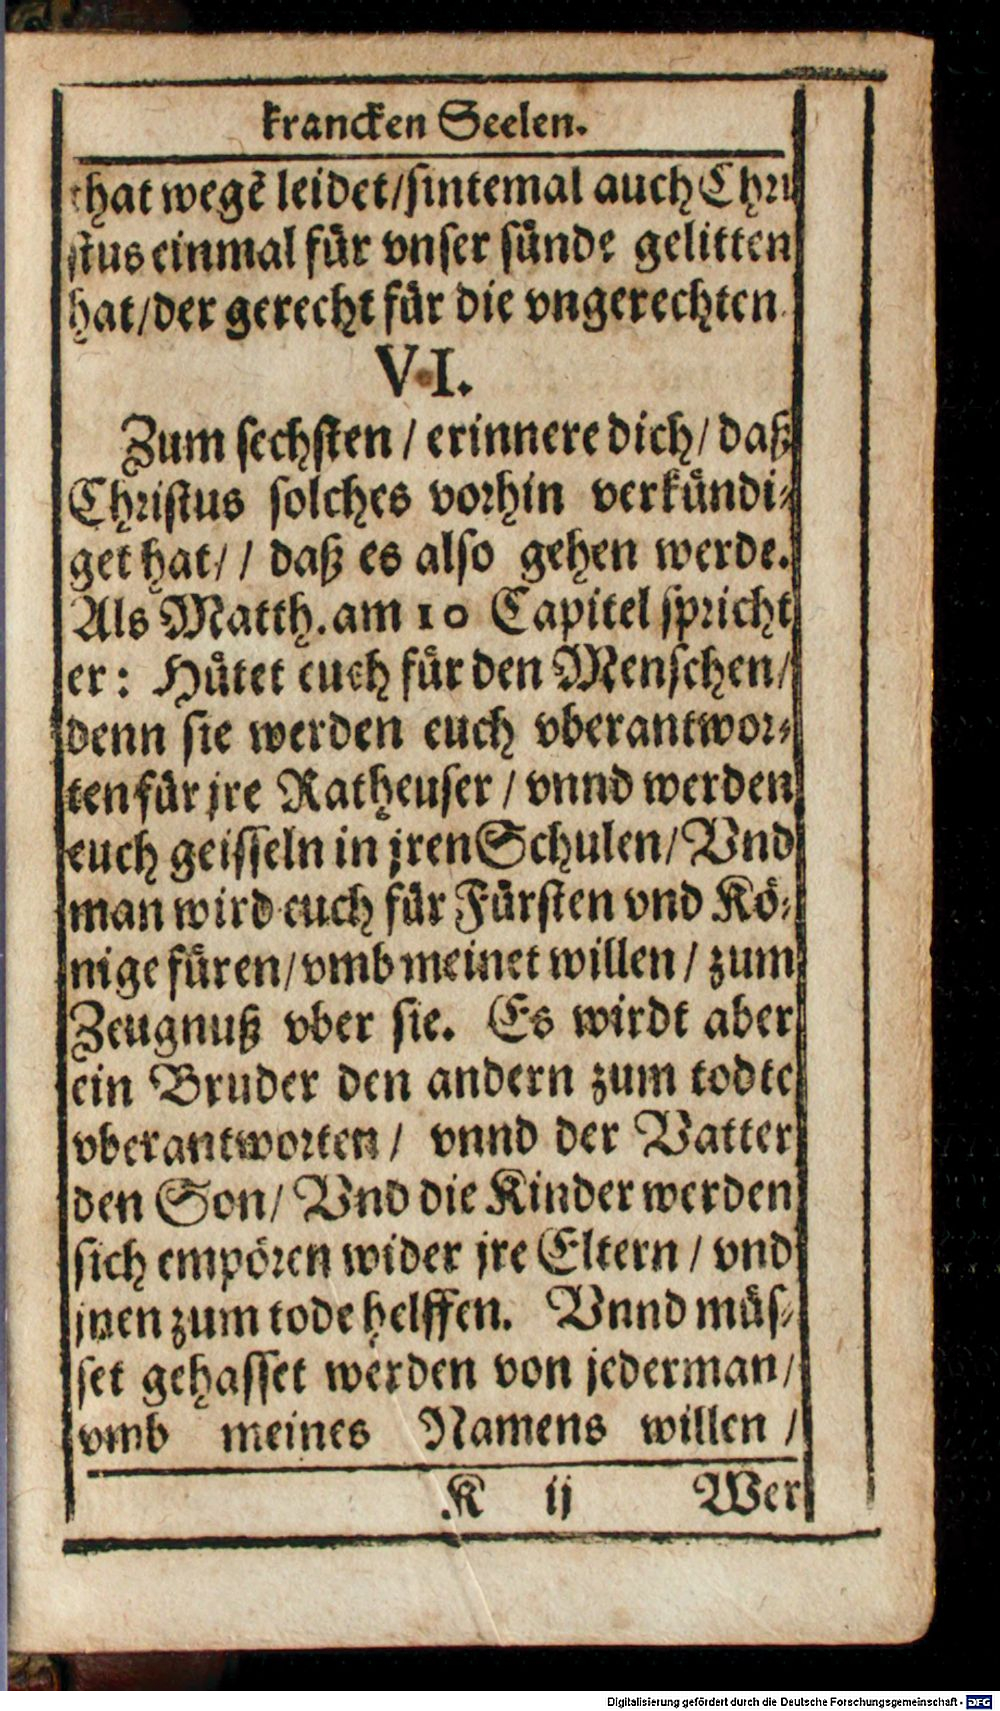 krancken Seelen.
that wegẽ leidet/sintemal auch Chri
stus einmal für vnser sünde gelitten
hat/der gerecht für die vngerechten
VI.
Zum sechsten / erinnere dich/ daß
Christus solches vorhin verkündi⸗
get hat/ / daß es also gehen werde.
Als Matth. am 10 Capitel spricht
er: Hütet euch für den Menschen/
denn sie werden euch vberantwor⸗
ten für jre Ratheuser / vnnd werden
euch geisseln in jren Schulen/ Vnd
man wird euch für Fürsten vnd Kö⸗
nige füren/vmb meinet willen / zum
Zeugnuß vber sie. Es wirdt aber
ein Bruder den andern zum todte
vberantworten/ vnnd der Vatter
den Son/ Vnd die Kinder werden
sich empören wider jre Eltern / vnd
jnen zum tode helffen. Vnnd müs⸗
set gehasset werden von jederman/
vmb meines Namens willen /
K ij Wer
Digitalisierung gefördert durch die Deutsche Forschungsgemeinschaft - DFG